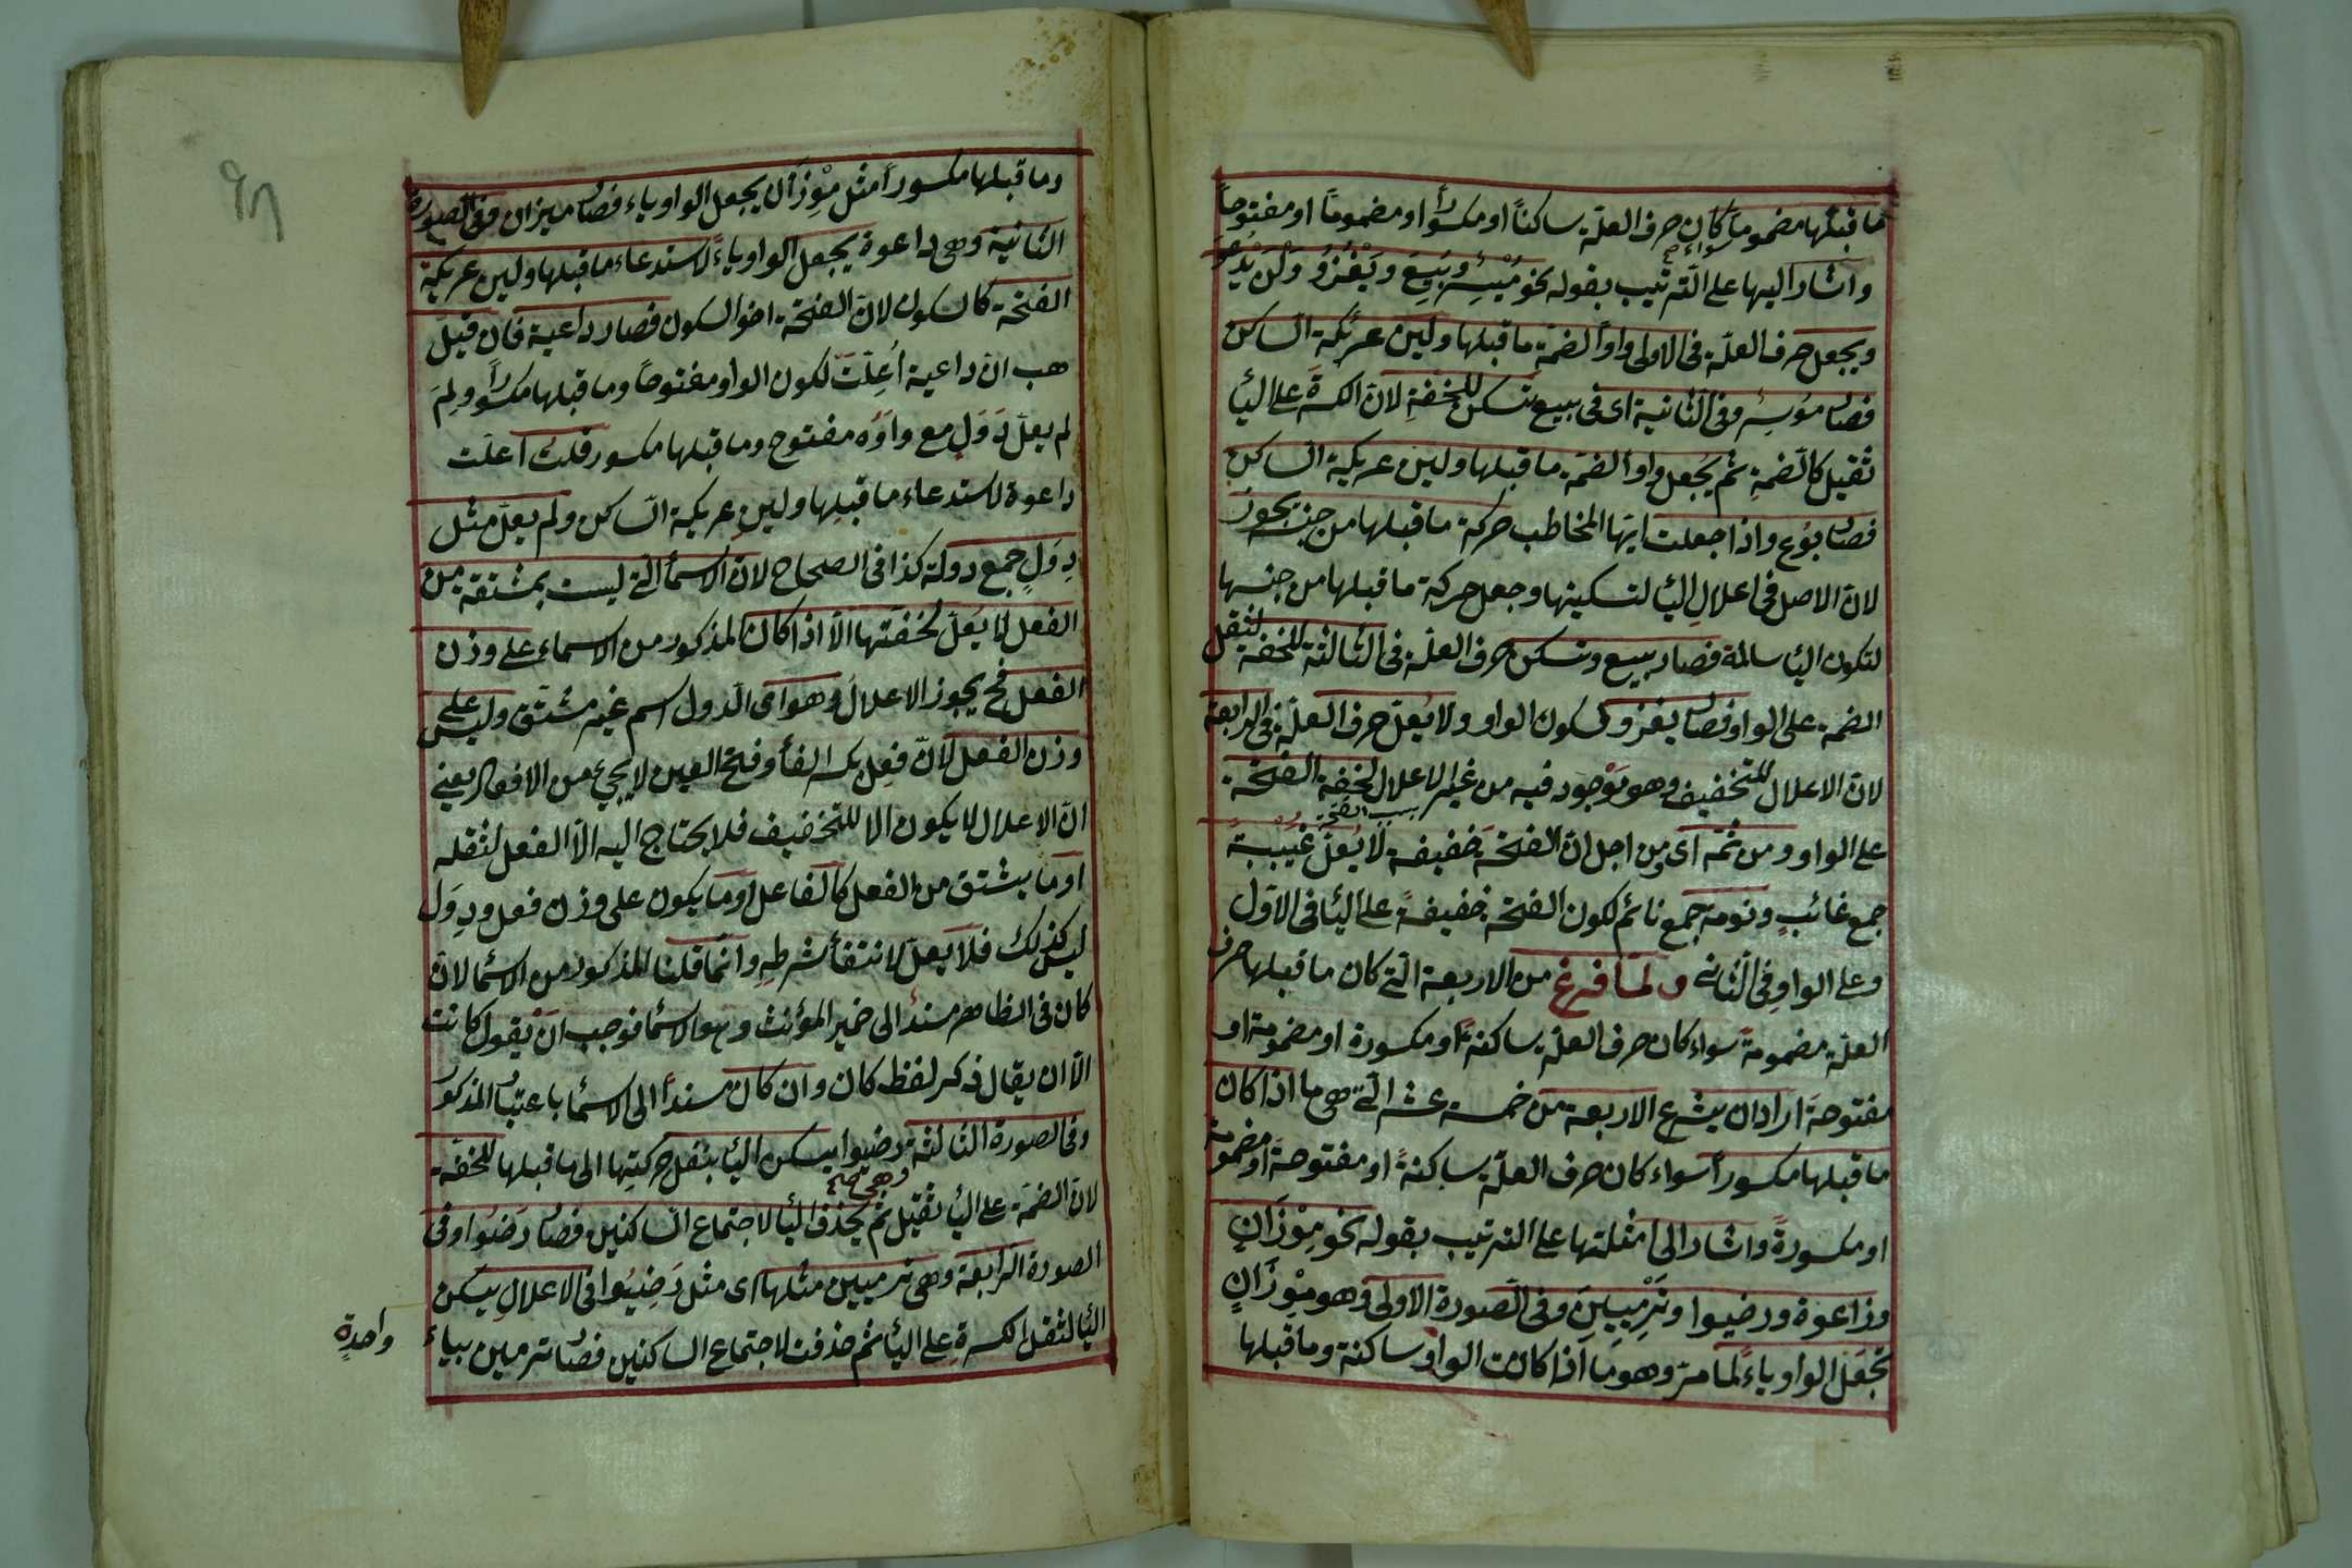 ما قبلها مضموما كان حرف العلّة ساكناً او مكسوراً او مضموماً او مفتوحاً
سواء صح
واشار اليها على الترتيب بقوله نحو مُيْسِر وبُيِعَ ويَغْزُوُ ولَنْ يَدْعُوَ
ويجعل حرف العلّة فى الاولى واواً لضمّة ما قبلها ولين عريكة الساكن
فصار موسر وفى الثانية اى فى بيع تسكن للخفّة لانّ الكسرة على اليأ
ثقيل كالضمة ثم يُجعل واواً لضمّة ما قبلها ولين عريكة الساكن
فصار بوُع واذا جعلت ايّها المخاطب حركة ما قبلها من جنسه يجوز
لانّ الاصل فى اعلال اليأ تسكينها وجعل حركة ما قبلها من جنسها
لتكون اليأ سالمة فصار بيع وتسكن حرف العلّة فى الثالثة للخفّة لثقل
الضمة على الواو فصار يغزو بسكون الواو ولا يُعلّ حرف العلّة فى الرابعة
لانّ الاعلال للتخفيف وهو مَوْجود فيه من غير الاعلال لخفة الفتحة
بسبب الفتحة
على الواو ومن ثمّه اى من اجل انّ الفتحة خفيفة لا يُعلّ غيبةٌ
جمع غائبٍ ونومة جمع نائم لكون الفتحة خفيفةً على اليأ فى الاوّل
وعلى الواو فى الثانى ولمّا فرغ من الاربعة الّتى كان ما قبلها حرف
العلّة مضمومةً سواء كان حرف العلّة ساكنةً او مكسورة او مضمومة او
مفتوحة اراد ان يشرع الاربعة من خمسة عشر الّتى هى ما اذا كان
ما قبلها مكسوراً سواء كان حرف العلّة ساكنةً او مفتوحة او مضمومة
او مكسورةً واشار الى امثلتها على الترتيب بقوله نحو مِوْزَانٍ
وداعوة ورضيوا وتَرْمِيِينَ وفى الصورة الاولى وهو مِوْزَانٍ
تجعل الواو ياءً لما مرّ وهو ما اذا كانت الواو ساكنة وما قبلها
وما قبلها مكسوراً مثل مِوْزَان يجعل الواو ياء فصار ميزان وفى الصورة
الثانية وهى داعوة يجعل الواو ياءً لاستدعاء ما قبلها ولين عريكة
الفتحة كالسكون لانّ الفتحة اخو السكون فصار داعية فان قيل
هب انّ داعية اُعِلّتْ لكون الواو مفتوحاً وما قبلها مكسوراً ولِمَ
لم يعلّ دِوَلٍ مع واوُه مفتوح وما قبلها مكسور قلت اعلّت
داعوة لاستدعاء ما قبلها ولين عريكة الساكن ولم يعلّ مثل
دِوَلٍ جمع دولة كذا فى الصحاح لانّ الاسمأ الّتى ليست بمشتقة من
الفعل لا يُعلّ لخفّتها الاّ اذا كان المذكور من الاسماء على وزن
الفعل فح يجوز الاعلال وهو اى الدول اسم غير مشتق وليس على
وزن الفعل لانّ فِعِل بكسر الفأ وفتح العين لا يجئ من الافعال يعنى
انّ الاعلال لا يكون الا للتخفيف فلا يحتاج اليه الاّ الفعل لثقله
او ما يشتق من الفعل كالفاعل او ما يكون على وزن فعل ودِوَل
ليس كذلك فلا يعلّ لانتفأ شرطه وانّما قلنا المذكور من الاسمأ لانّ
كان فى الظاهر مسنداً الى ضمير المؤنث وهو الاسمأ فوجب ان يقول كانت
الاّ ان يقال ذكر لفظ كان وان كان مسنداً الى الاسمأ باعتبار المذكور
وفى الصورة الثالثة رضيوا يسكن اليأ بنقل حركتها الى ما قبلها للخفّة
وهى صح
لانّ الضمّة على اليأ ثقيل ثم يحذف اليأ لاجتماع الساكنين فصار رَضُوا وفى
الصورة الرابعة وهى ترميين مثلها اى مثل رَضِيُوا فى الاعلال يسكن
اليأ لثقل الكسرة على اليأ ثم حذفت لاجتماع الساكنين فصار ترمين بياء
واحدةٍ